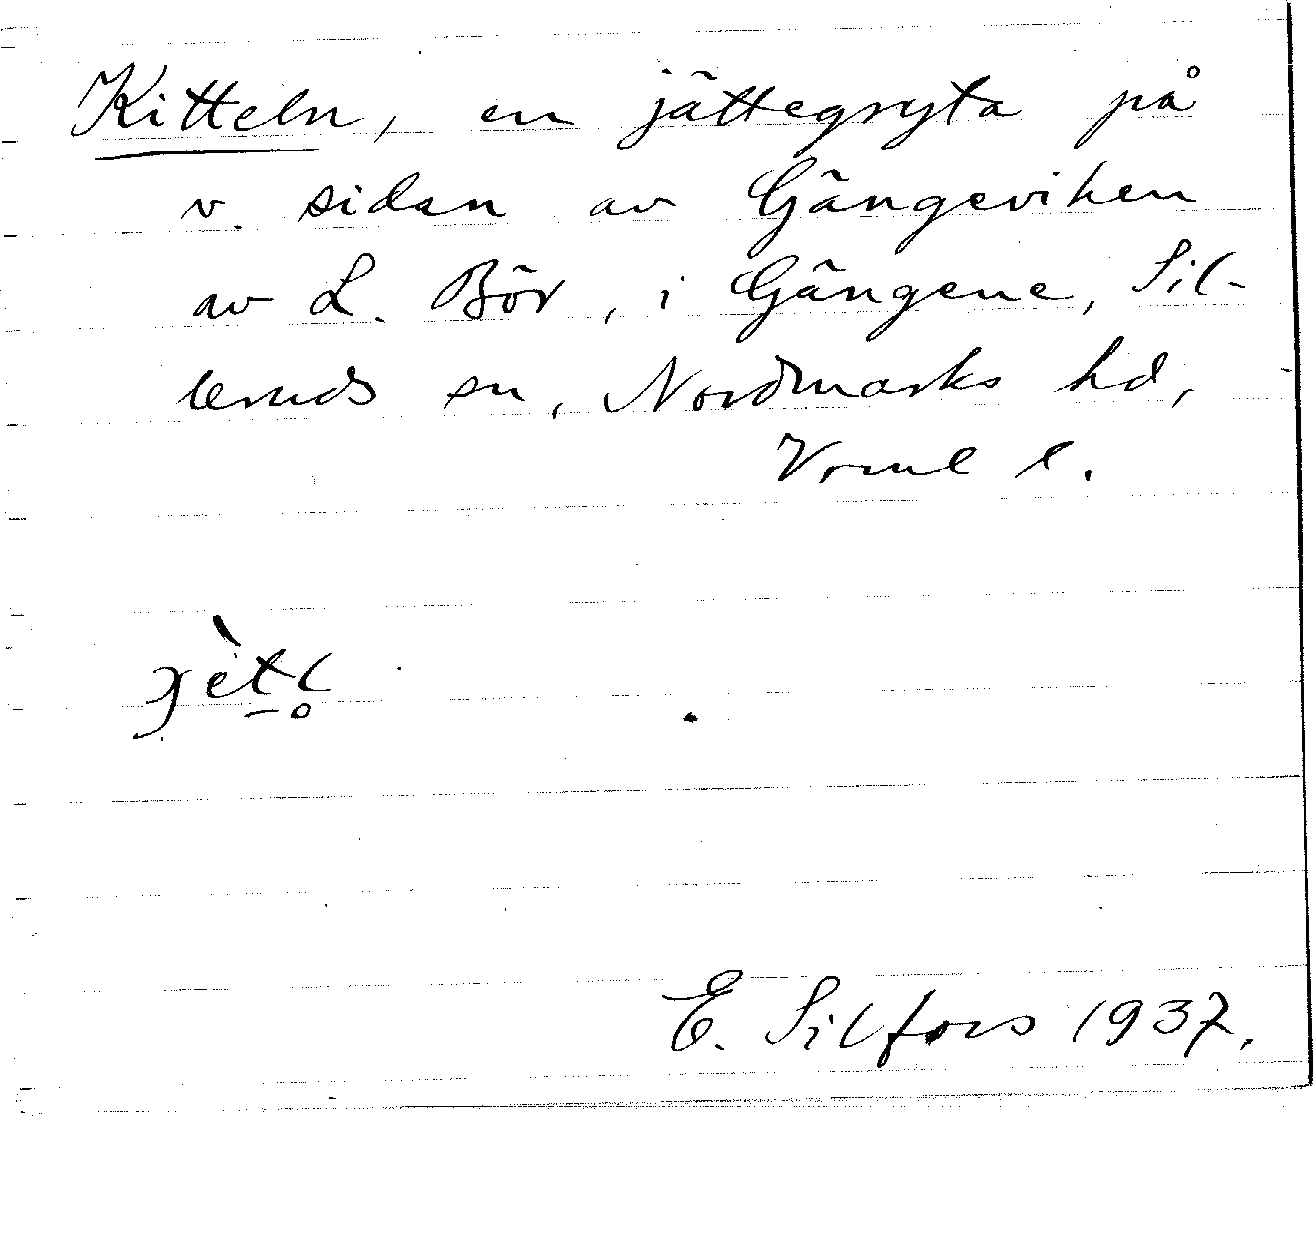 Kitteln, en jättegryta på
v. sidan av Gängeviken
av L. Bör, i Gängene, Sil-
leruds sn, Nordmarks hd,
Vrml l.
E. Silfors 1937.